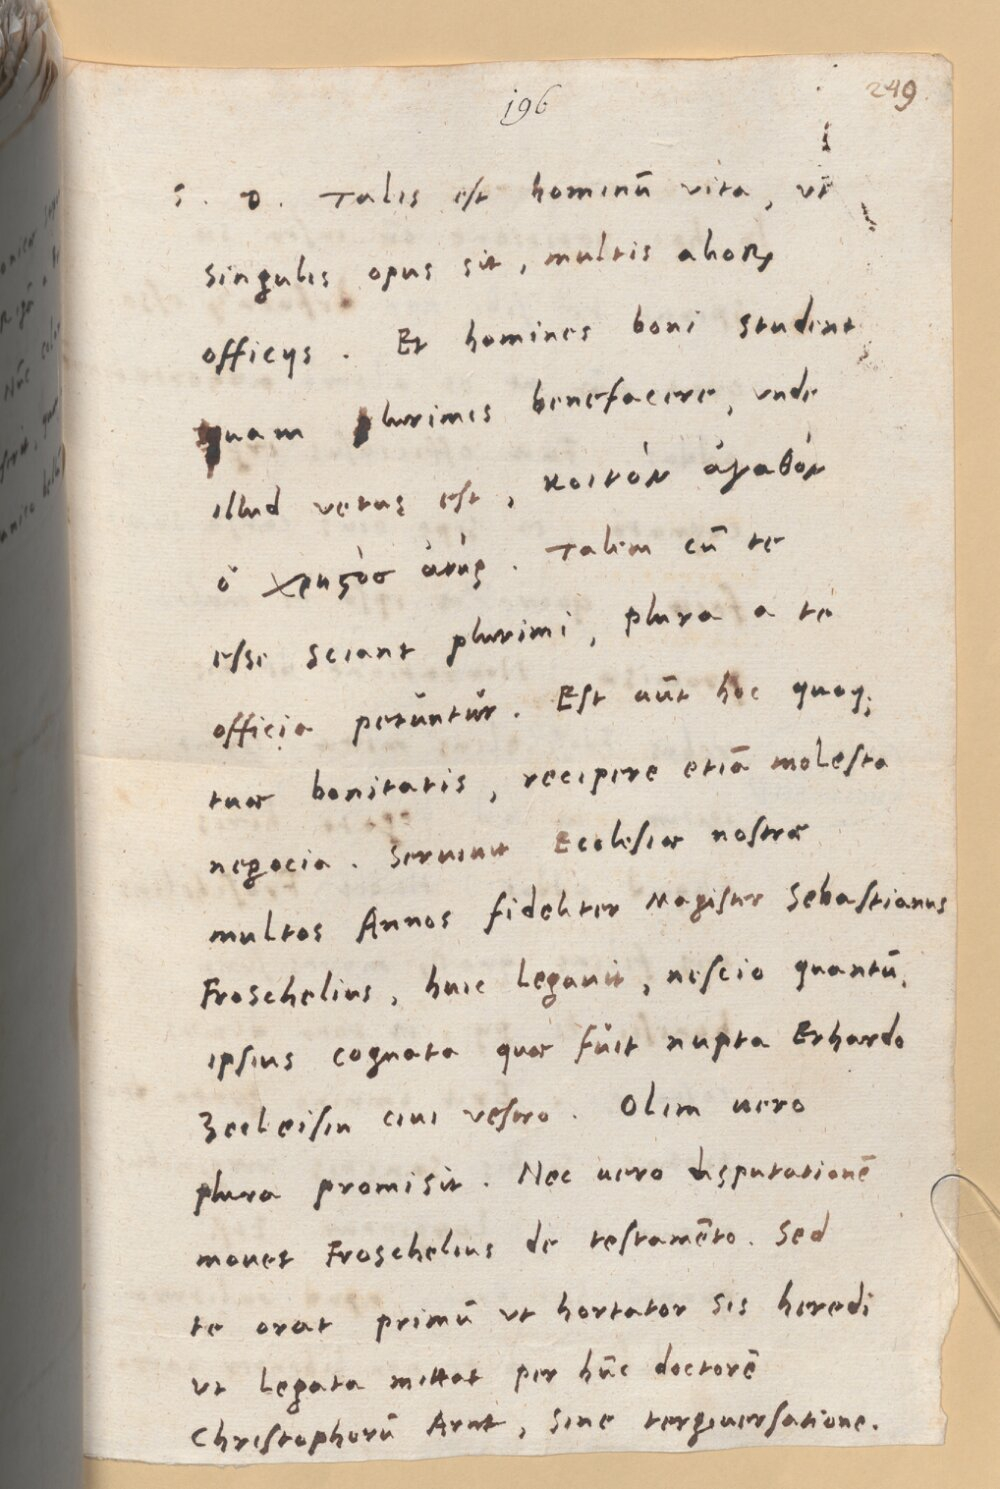 196
249
S. D. Talis est hominū vita, vt
singulis opus sit, multis alioꝝ
officijs. Et homines boni student
quam plurimis benefacere, vnde
illud vetus est, κοινὸν ἀγαθὸν
ὁ χρηϛὸσ ἀνὴρ. Talem cū te
esse sciant plurimi, plura a te
officia petuntur. Est aūt hoc quoq;
tuæ bonitatis, recipere etiā molesta
negocia. Seruiuit Ecclesiæ nostræ
multos Annos fideliter Magister Sebastianus
Froschelius, huic legauit, nescio quantū,
ipsius cognata quæ fuit nupta Erhardo
Zecleisin ciui vestro. Olim uero
plura promisit. Nec uero disputationē
mouet Froschelius de testamēto. Sed
te orat primū vt hortator sis heredi
vt legata mittat per hūc doctorē
Christophorū Arnt, sine tergiuersatione.